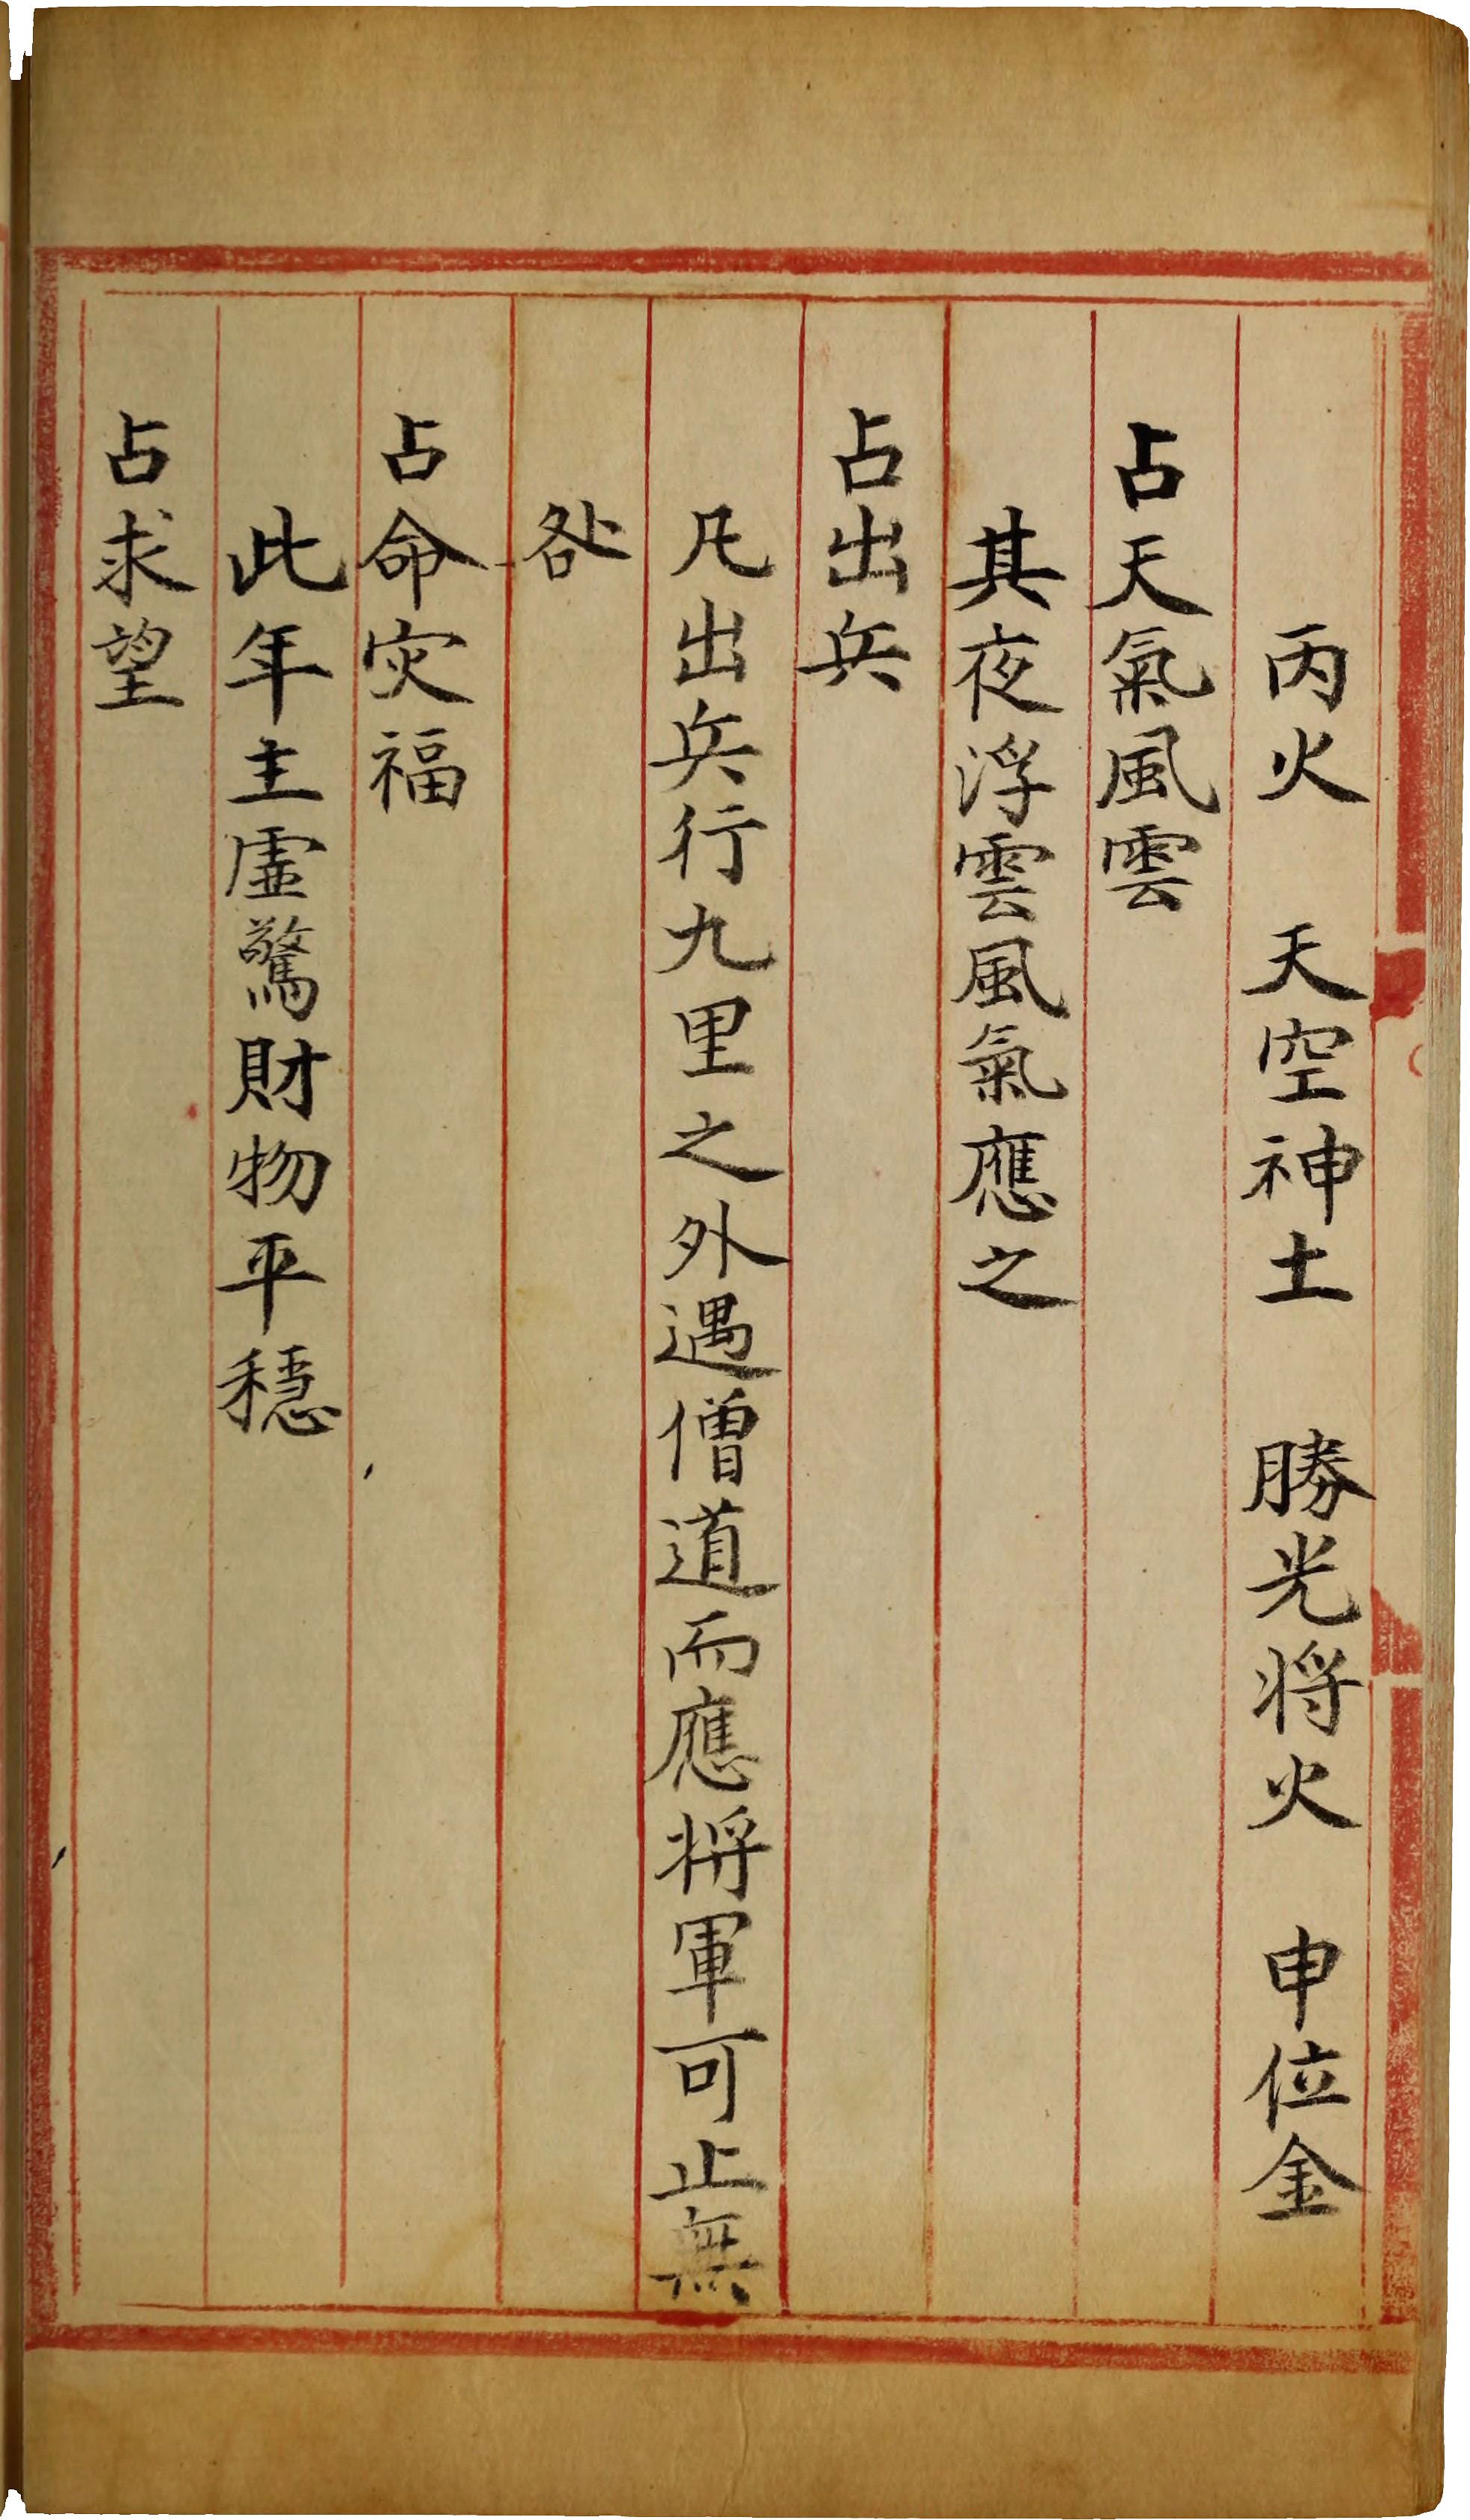 丙火　天空神土　勝光将火　申位金
占天氣風雲
其夜浮雲風氣應之
占出兵
凡出兵行九里之外遇僧道而應将軍可止無
咎
占命灾福
此年主虛驚財物平穩
占求望